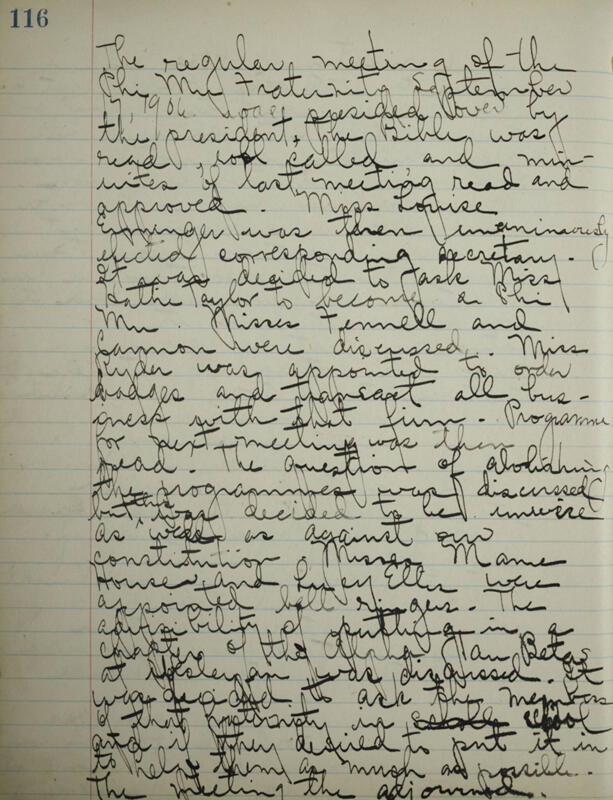 116
The regular meeting of the
Phi Mu Fraternity September
1906 was presided over by
the president, the Bible was
read, roll called and min-
utes of last meeting read and
approved. Miss Louise
was then unaninaously
elected corresponding secretary.
It was decided to ask Miss
Taylor to become a Phi
Mu. Misses Fennell and
Cannon were discussed. Miss
Ryder was appointed to order
badges and transact all bus-
iness with that firm. Programme
for next meeting was then
read. The question of abolishing
the programmes was discussed
but this was decided to be unwise
as well as against our
constitution. Misses Mamie
House and Lucy Ella were
appointed bell ringers. The
advisibility of putting in a
chapter of the Alpha Tau Betas
at Wesleyan was discussed. It
was decided to ask the members
of that fraternity in school
and if they desired to put it in
to help them as much as possible.
The meeting the adjourned.